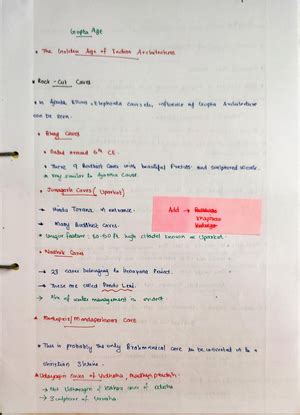 Gupta Age
• The Golden Age of Indian Architecture
• Rock-Cut Caves
• In Ajanta, Ellora, Elephanta caves etc, influence of Gupta Architecture can be seen.
• Bagh Caves
• Dated around 6th CE.
• These 9 Buddhist Caves with beautiful and sculptured
→ Very similar to Ajanta Caves.
• Junagarh Caves (Uparkot)
→ Hindu Torana in entrance.
→ Many Buddhist caves.
• Unique feature : 30-50 ft high citadel known as Uparkot.
Add →
• Nashik Caves
→ 23 caves belonging to Hinayana Period.
→ These are called Pandu Leni.
→ of water management is evident.
• Mandapeshwar Cave
• This is probably the only Brahmanical cave to be converted into a christian Shrine.
• Udayagiri Caves of Vidhisha, Madhya pradesh.
→ Not Udayagiri & caves of odisha
→ 3 sculpture of Varaha